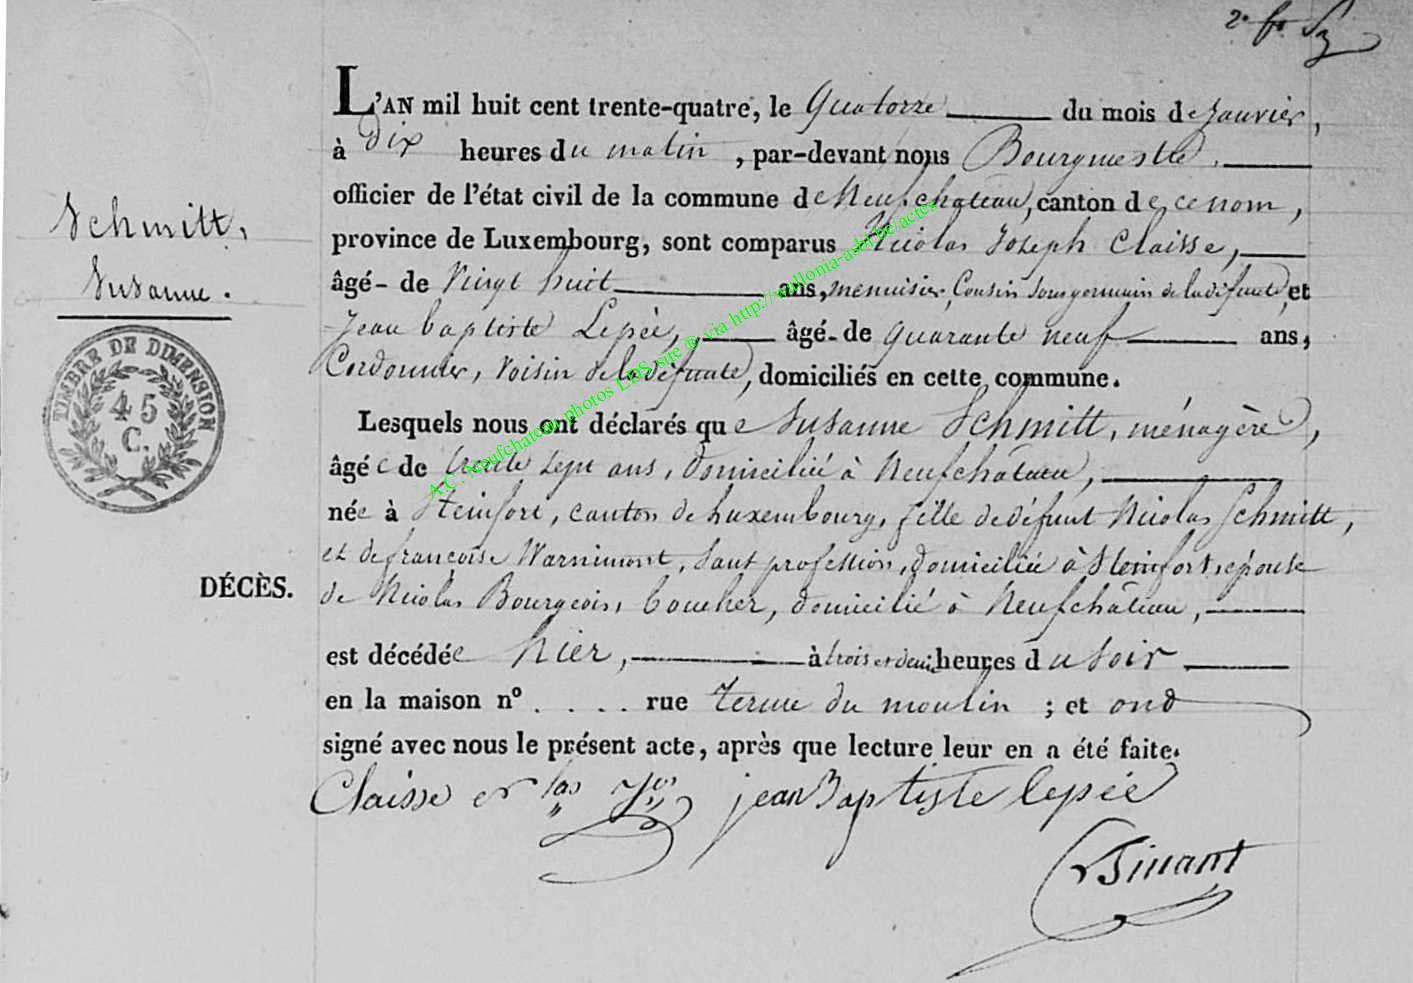 2e
L'AN mil huit cent trente-quatre, le Quatorze du mois de Janvier,
à Dix heures du matin, par-devant nous Bourgmestre
officier de l'état civil de la commune de Neufchâteau, canton de ce nom,
province de Luxembourg, sont comparus Nicolas Joseph Claisse,
âgé- de Vingt huit ans, menuisier, Cousin sous germain de la défunte, et
Jean baptiste Lepée, âgé- de quarante neuf ans,
Cordonnier, Voisin de la défunte, domiciliés en cette commune.
Schmitt,
Susanne.
TIMBRE DE DIMENSION
45
C.
Lesquels nous ont déclarés que Susanne Schmitt, ménagère,
âgée de trente sept ans, domiciliée à Neufchâteau,
née à Steinfort, canton de Luxembourg, fille de défunt Nicolas Schmitt,
et de françoise Warnimont, sans profession, domiciliée à Steinfort, epouse
DÉCÈS.
de Nicolas Bourgeois, boucher, domicilié à Neufchâteau,
est décédée hier, à trois et demi heures du soir
en la maison n° . . . . rue terme du moulin ; et ont
signé avec nous le présent acte, après que lecture leur en a été faite.
Claisse jean Baptiste lepée
Dinant
A.C. Neufchateau photos LDS vue via http://wallonia-asbl.be/actes